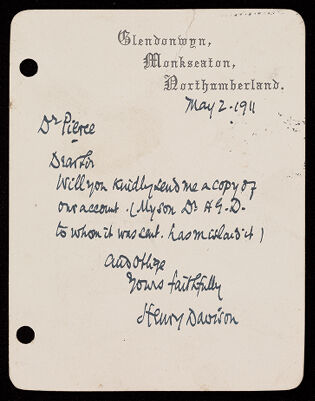 Glendonwyn,
Monkseaton,
Northumberland.
May 2. 1911
Dr Pierce
Dear Sir
Will you kindly send me a copy of
our account. (My son Dr A G. D.
to whom it was sent. has mislaid it)
And oblige
Yours faithfully
Henry Davison